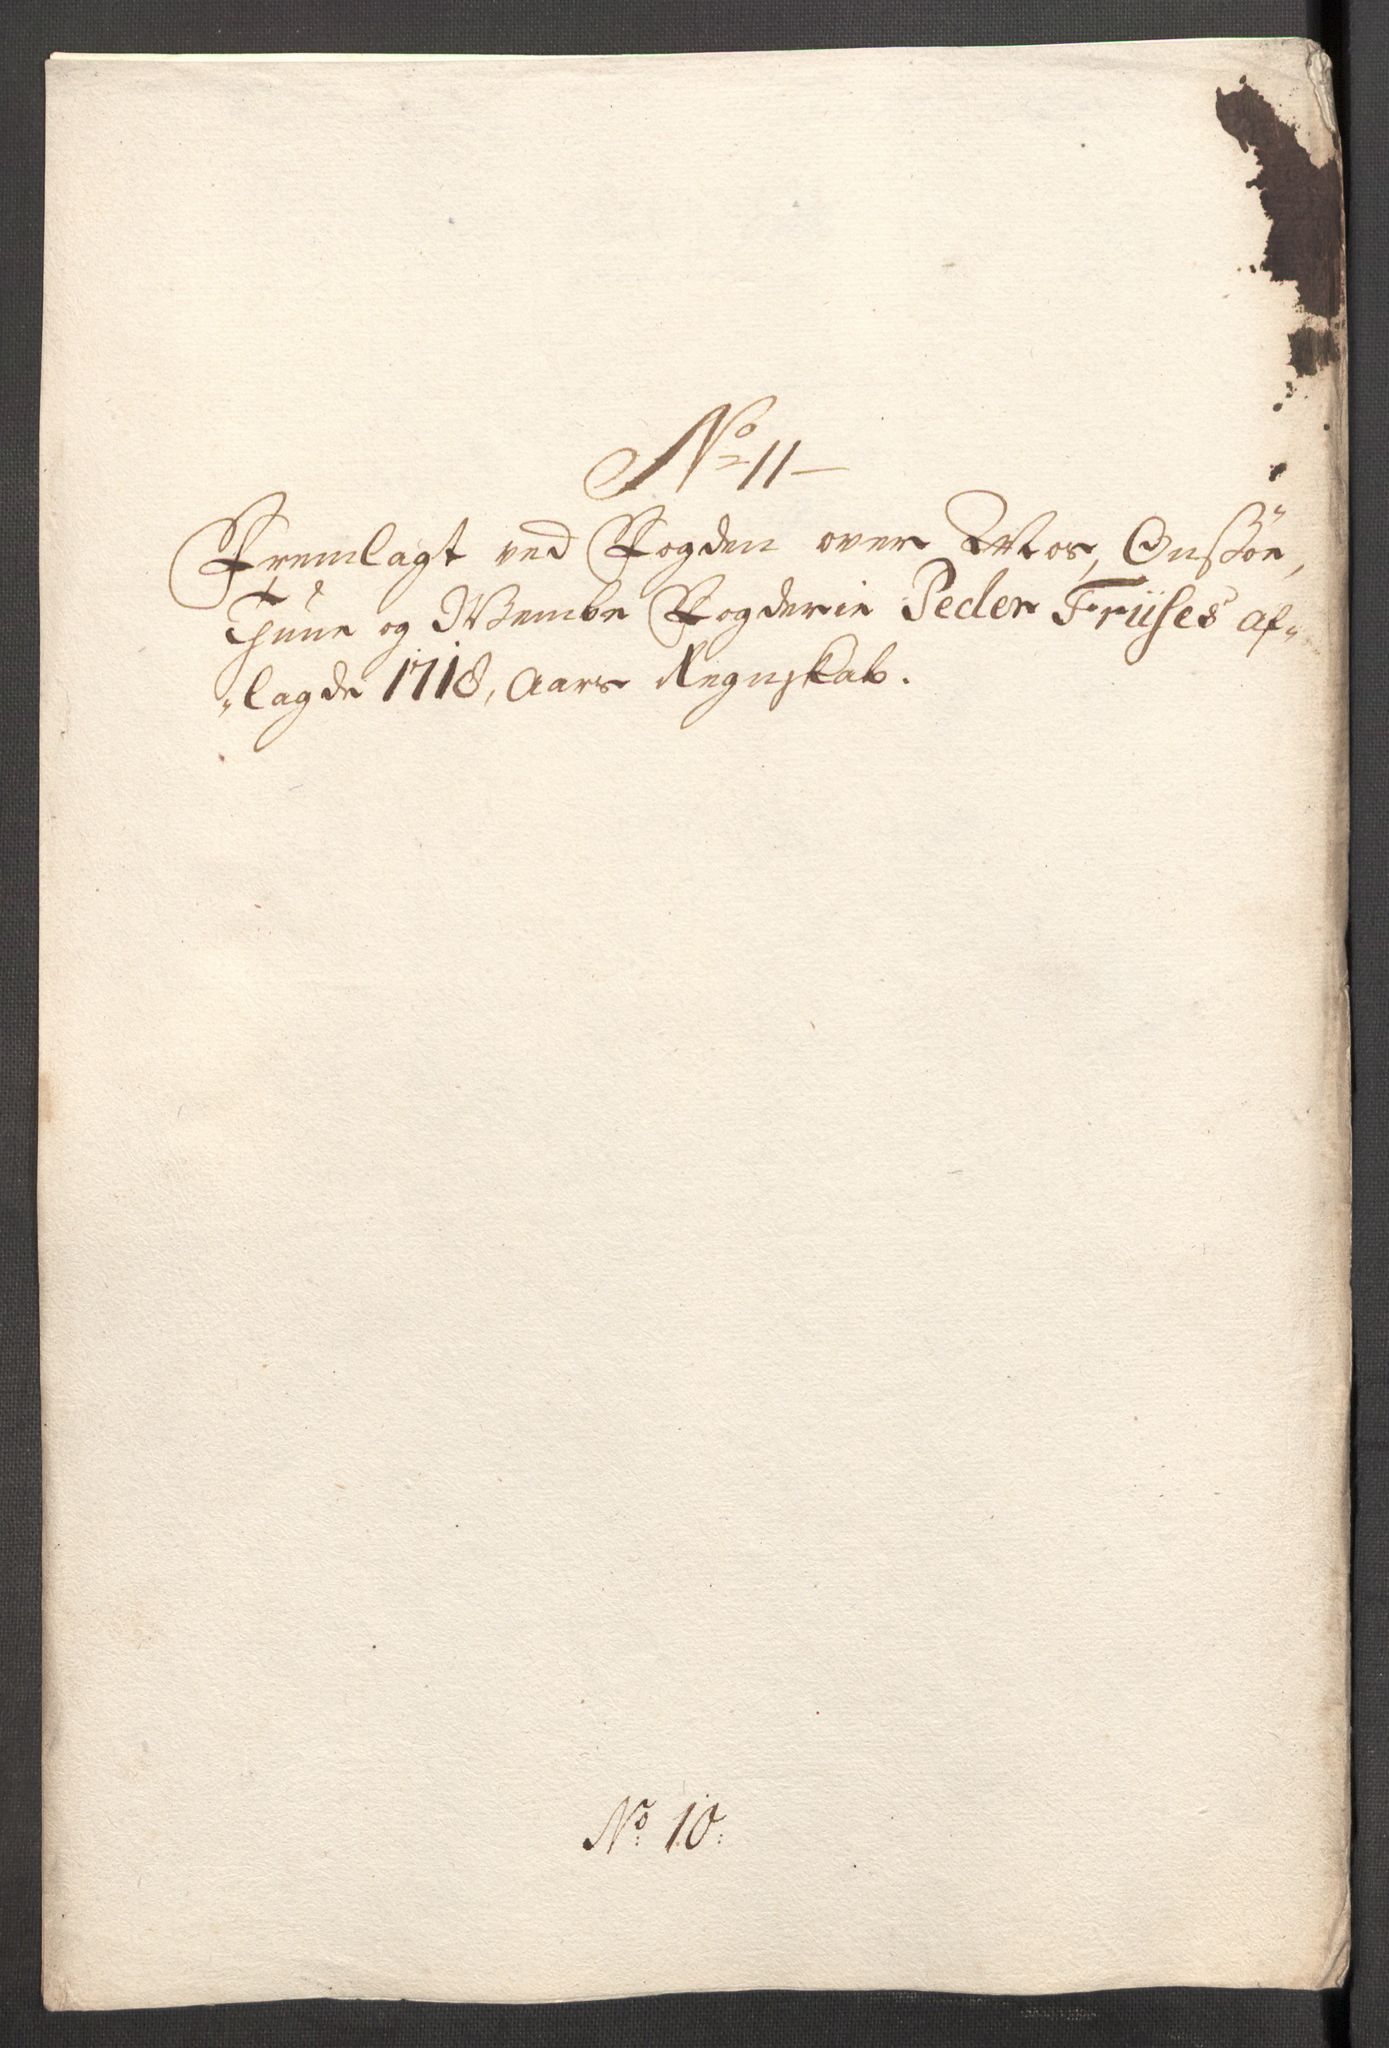 No 11
Fremlagt ved Fogden over Mos, Onsöe,
Thune og Wembe Fogderie Peder Friises af-
"lagde 1718, Aars Regnskab.
No 10.